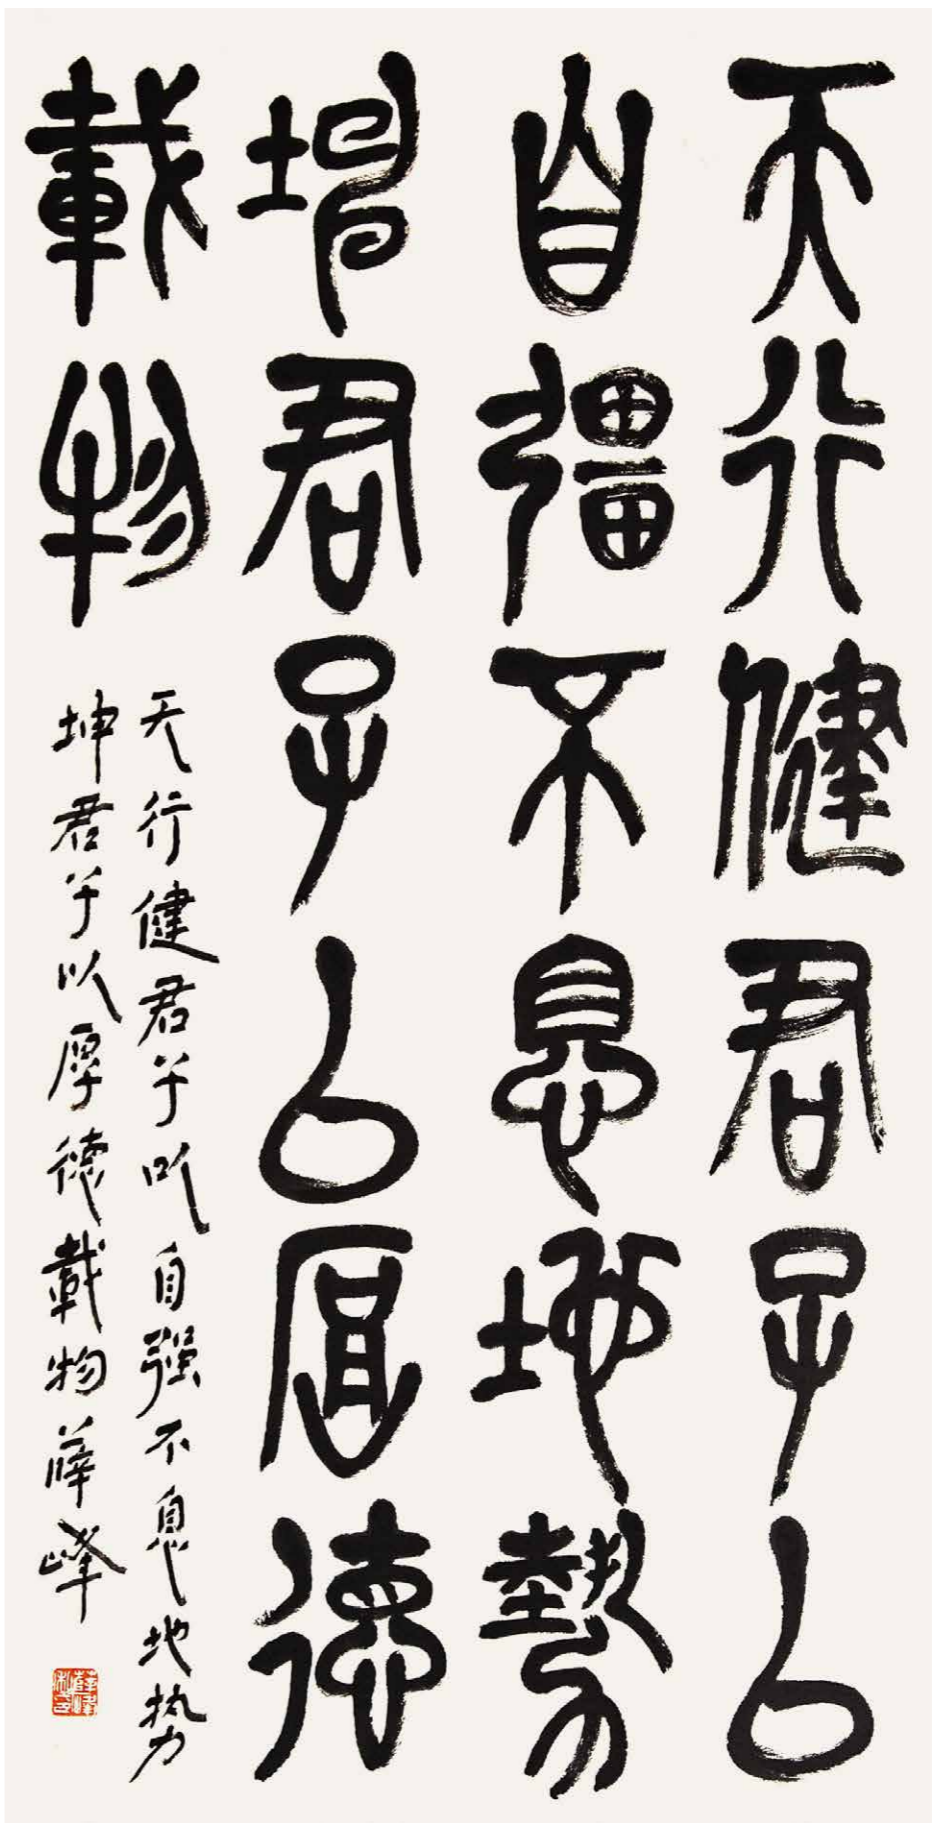 天行健君子以
自彊不息地勢
坤君子以厚德
載物
天行健君子以自强不息地势
坤君子以厚德載物薛峰